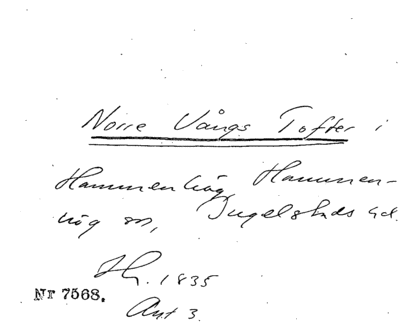 Norre Vångs Tofter i
Hammenhög, Hammen-
hög sn, Ingelstads hd.
Hg. 1835
Nr 7568.
Ant 3.